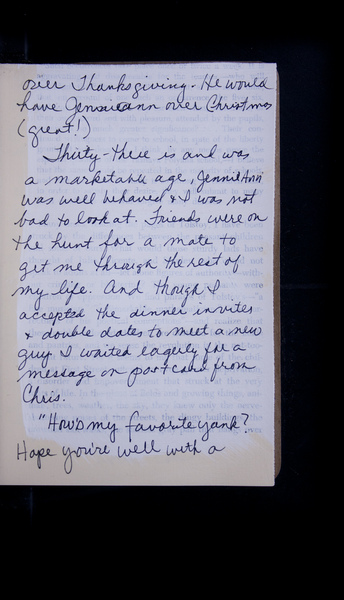 over Thanksgiving. He would
have Jennieann over Christmas
(great!)
Thirty-three is and was
a marketable age, JennieAnn
was well behaved & I was not
bad to look at. Friends were on
the hunt for a mate to
get me through the rest of
my life. And though I
accepted the dinner invites
& double dates to meet a new
guy I waited eagerly for a
message on post card from
Chris.
"How's my favorite yank?
Hope you're well with a